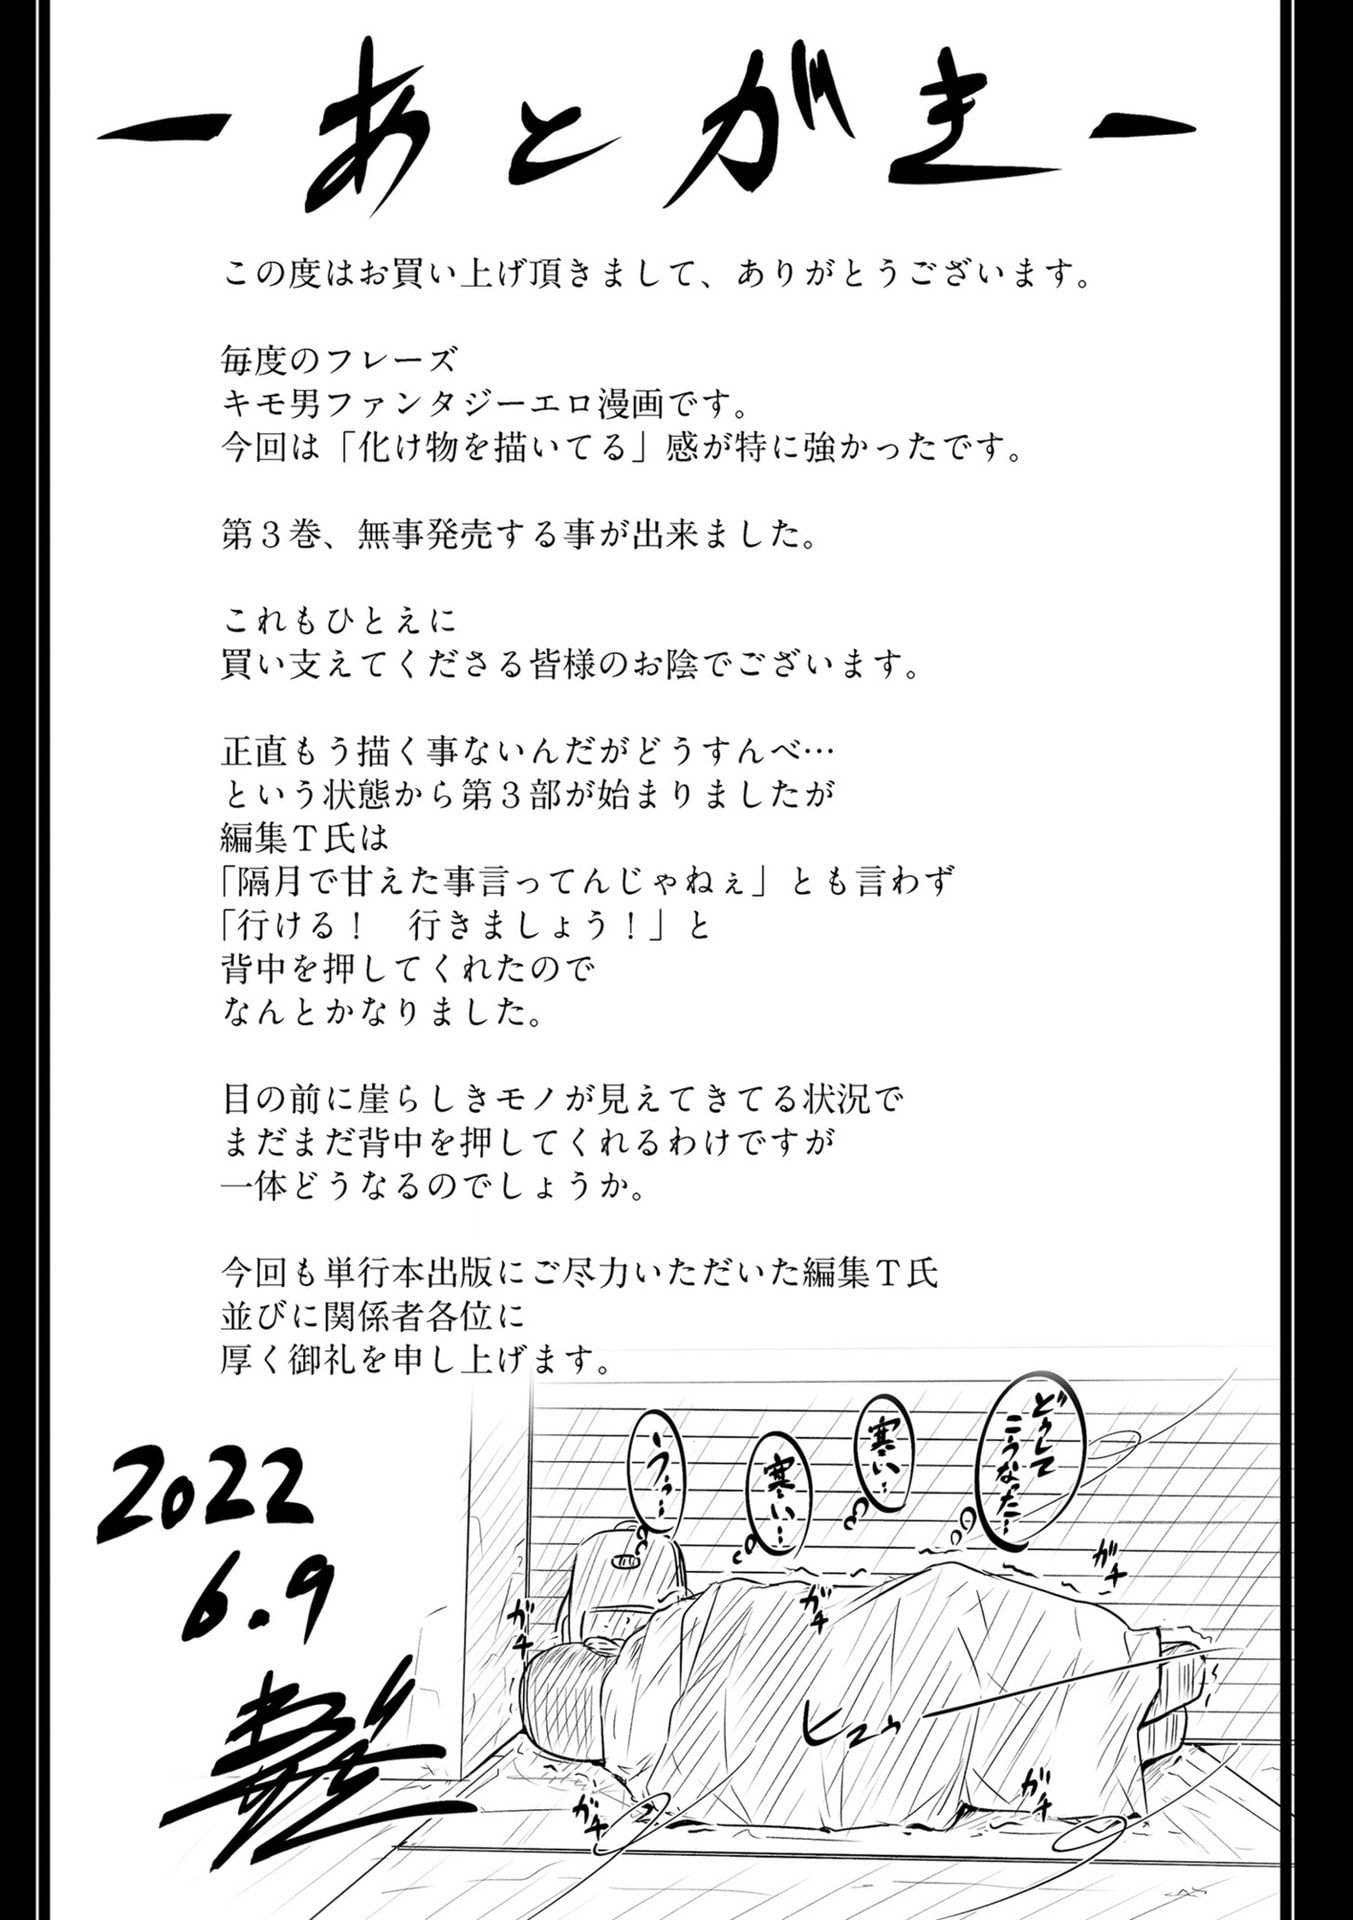 ーあとがきー
この度はお買い上げ頂きまして、ありがとうございます。
毎度のフレーズ
キモ男ファンタジーエロ漫画です。
今回は「化け物を描いてる」感が特に強かったです。
第３巻、無事発売する事が出来ました。
これもひとえに
買い支えてくださる皆様のお陰でございます。
正直もう描く事ないんだがどうすんべ…
という状態から第３部が始まりましたが
編集Ｔ氏は
「隔月で甘えた事言ってんじゃねぇ」とも言わず
「行ける！　行きましょう！」と
背中を押してくれたので
なんとかなりました。
目の前に崖らしきモノが見えてきてる状況で
まだまだ背中を押してくれるわけですが
一体どうなるのでしょうか。
今回も単行本出版にご尽力いただいた編集Ｔ氏
並びに関係者各位に
厚く御礼を申し上げます。
どぅして
こうなった…
寒い…
寒い…
うぅ…
ガチ
ガチ
ガチ
ヒュゥ
ガチ
ガチ
2022
6.9